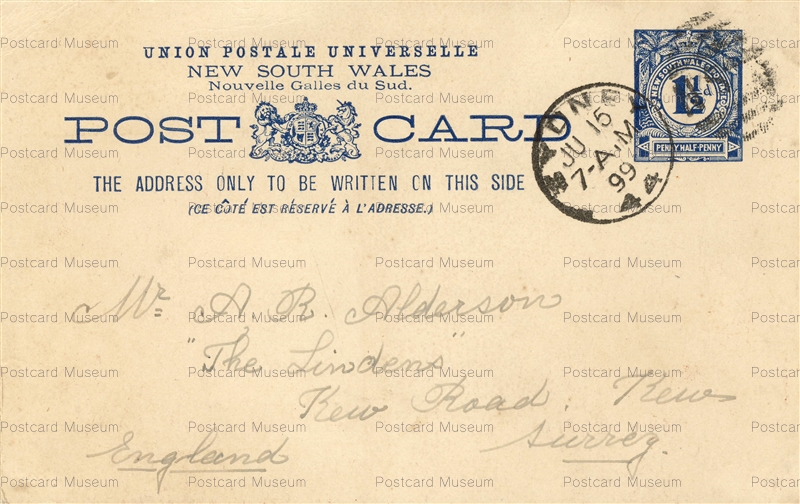 UNION POSTALE UNIVERSELLE
NEW SOUTH WALES
Nouvelle Galles du Sud.
POST CARD
THE ADDRESS ONLY TO BE WRITTEN ON THIS SIDE
(CE CÔTÉ EST RÉSERVÉ À L'ADRESSE.)
NEW SOUTH WALES POSTAGE
1½d
PENNY HALF-PENNY
SYDNEY
JU 15
7-A.M
99
44
Mr. A. R. Alderson
"The Lindens"
Kew Road. Kew
Surrey.
England
Postcard Museum